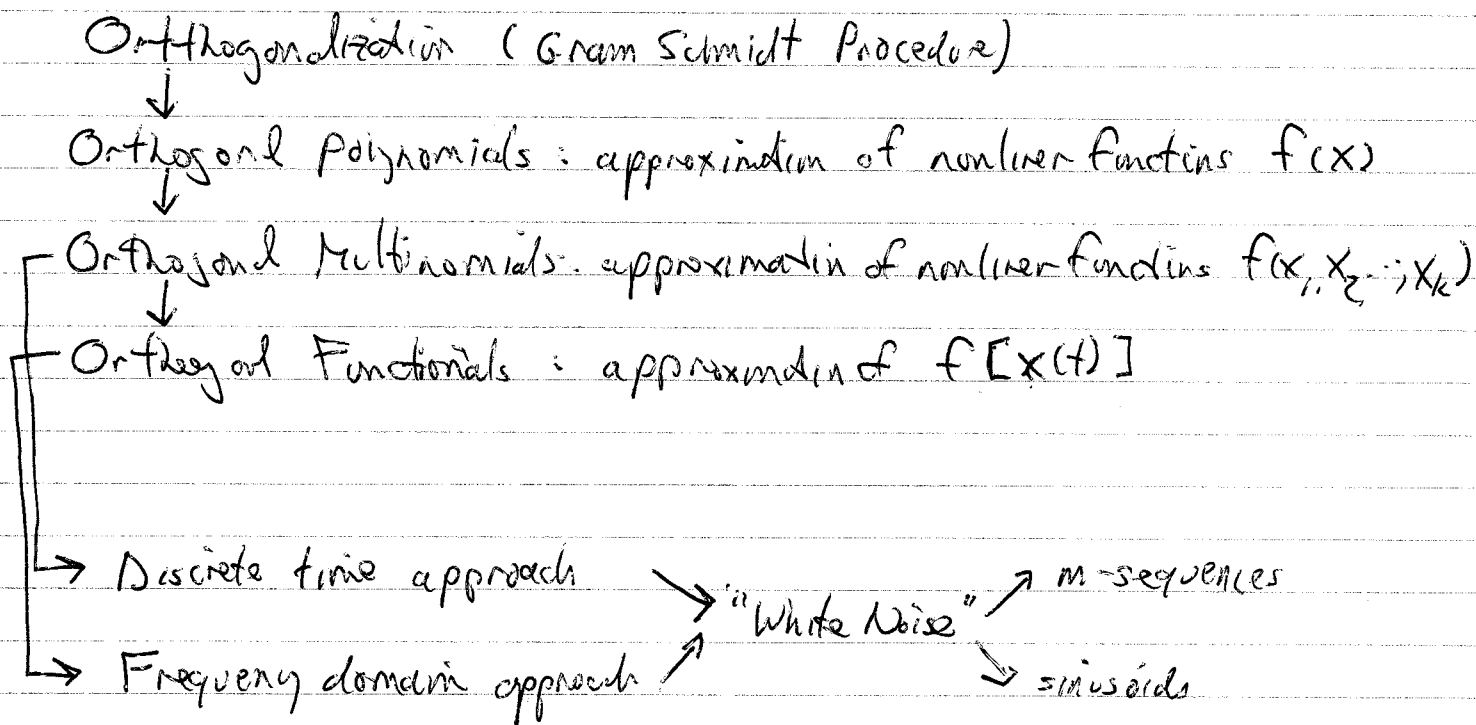 Orthogonalization (Gram Schmidt Procedure)
Orthogonal Polynomials: approximation of nonlinear functions f(x)
Orthogonal Multinomials: approximation of nonlinear functions f(x₁, x₂ ..., xₖ)
Orthogonal Functionals: approximation of f[x(t)]
Discrete time approach
"White Noise"
m-sequences
Frequency domain approach
sinusoids